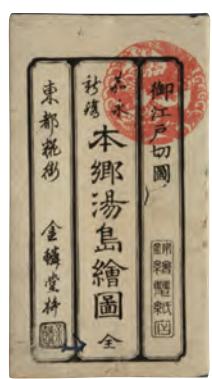 御江戸切圖
嘉永
新鐫
本郷湯島繪圖 全
東都糀街 金鱗堂梓